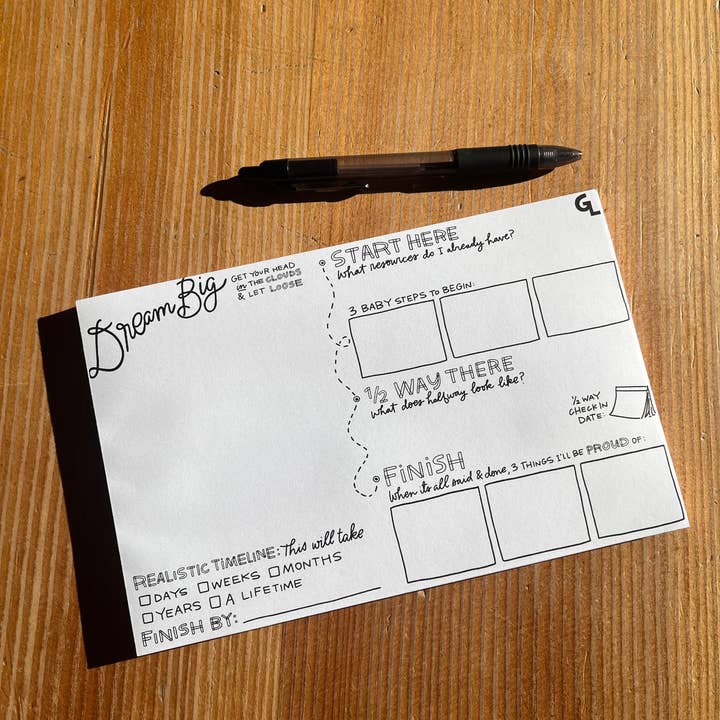 Dream Big
GET YOUR HEAD
in THE CLOUDS
& LET LOOSE
REALISTIC TIMELINE: This will take
DAYS WEEKS MONTHS
YEARS A LIFETIME
FINISH BY:
GL
START HERE
What resources do I already have?
3 BABY STEPS TO BEGIN:
1/2 WAY THERE
what does halfway look like?
1/2 WAY
CHECK IN
DATE:
FINISH
When its all said & done, 3 THINGS I'LL BE PROUD OF: